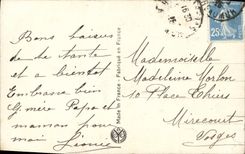 Bons baisers
de ta tante
et a bientot
Embrasse bien
Gmère Papa et
maman pour
moi
Léonie
Made in France - Fabriqué en France
25
Mademoiselle
Madeleine Morlon
10 Place Thiers
Mirecourt
Vosges